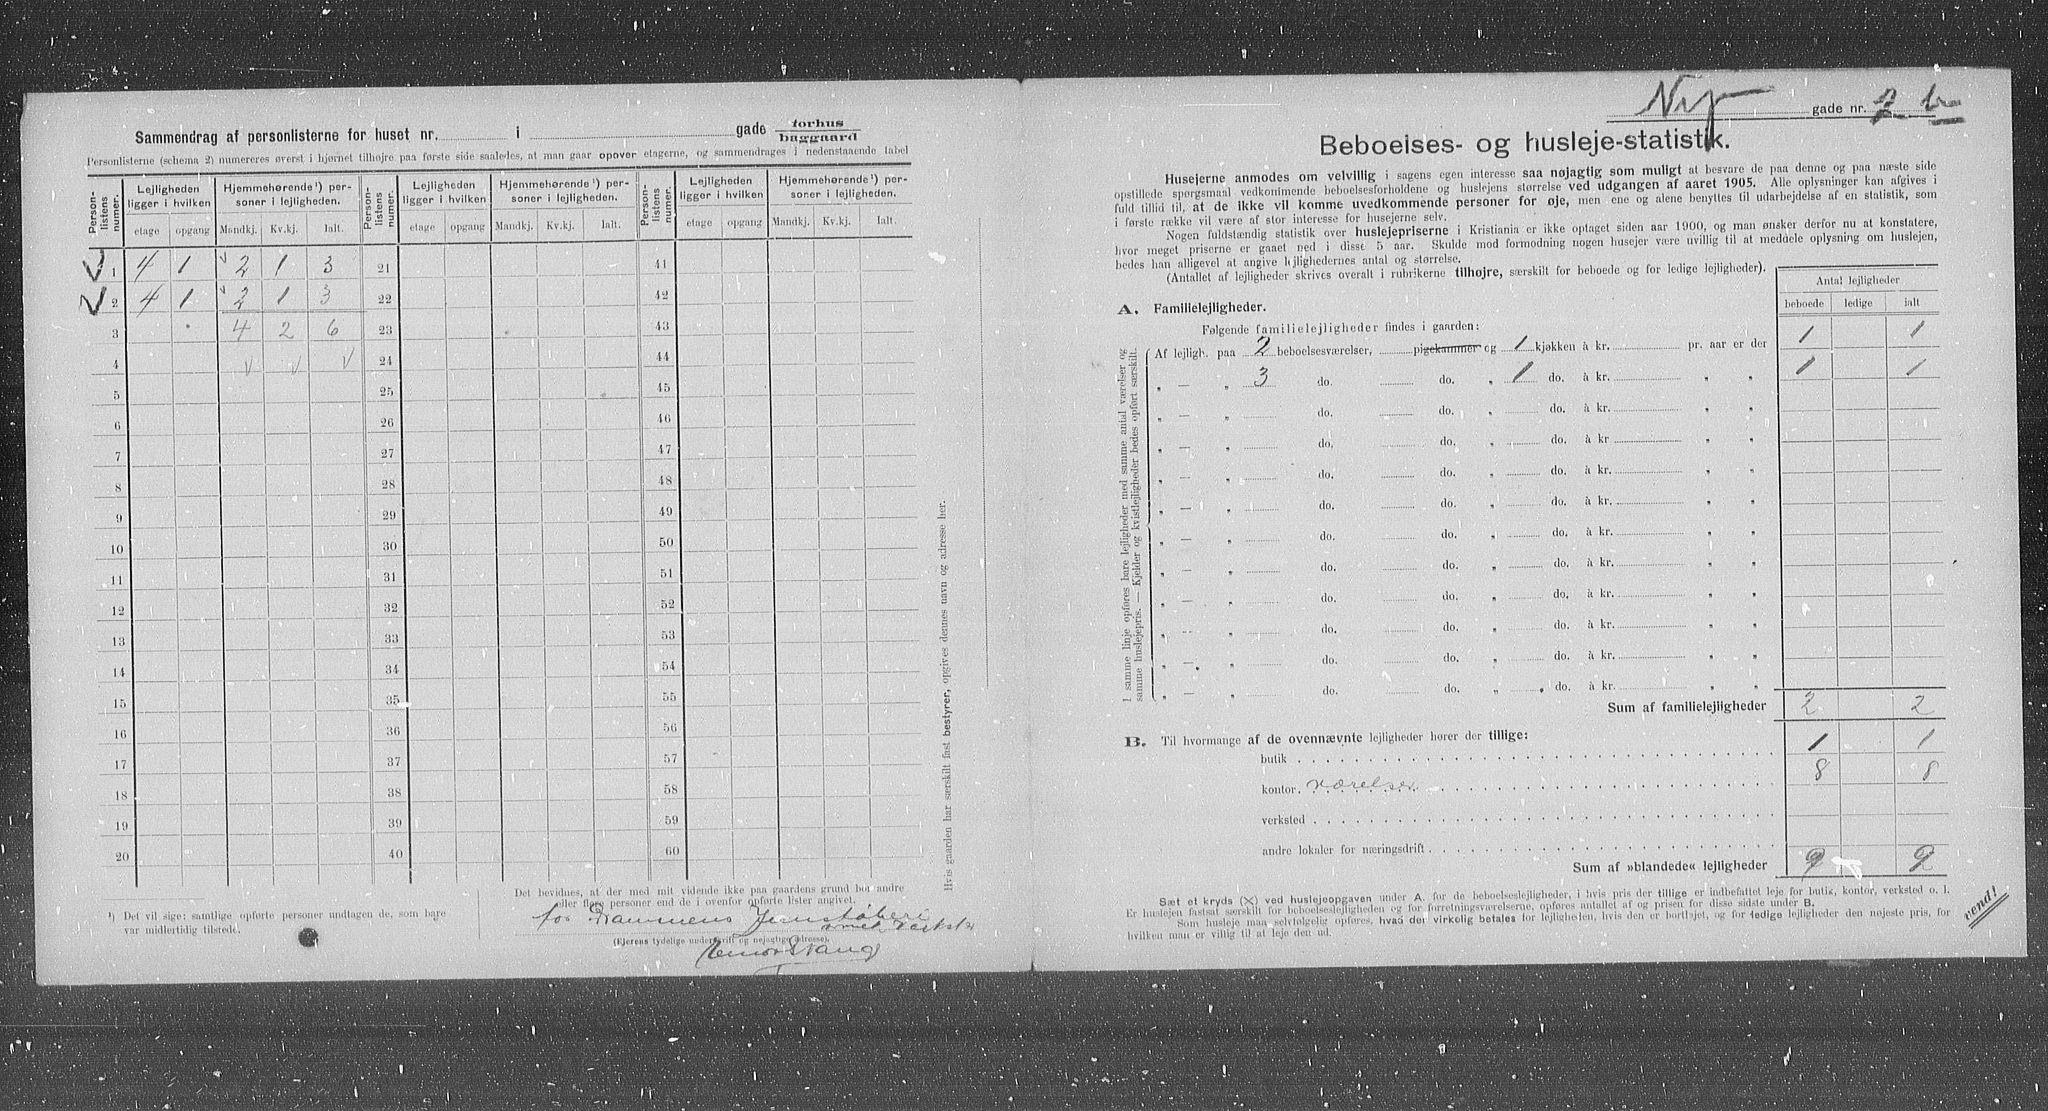 Sammendrag af personlisterne for huset nr. i gade forhus
baggaard
Personlisterne (schema 2) numereres øverst i hjørnet tilhøjre paa første side saaledes, at man gaar opover etagerne, og sammendrages i nedenstaaende tabel
Person-listens numer. Lejligheden ligger i hvilken Hjemmehørende ¹) personer i lejligheden. Person-listens numer. Lejligheden ligger i hvilken Hjemmehørende ¹) personer i lejligheden. Person-listens numer. Lejligheden ligger i hvilken Hjemmehørende ¹) personer i lejligheden.
etage opgang Mandkj. Kv.kj. Ialt. etage opgang Mandkj. Kv.kj. Ialt. etage opgang Mandkj. Kv.kj. Ialt.
1 4 1 2 1 3 21 41
2 4 1 2 1 3 22 42
3 4 2 6 23 43
4 24 44
5 25 45
6 26 46
7 27 47
8 28 48
9 29 49
10 30 50
11 31 51
12 32 52
13 33 53
14 34 54
15 35 55
16 36 56
17 37 57
18 38 58
19 39 59
20 40 60
¹) Det vil sige: samtlige opførte personer undtagen de, som bare
var midlertidig tilstede.
Det bevidnes, at der med mit vidende ikke paa gaardens grund bor andre
eller flere personer end de i ovenfor opførte lister angivet.
for Drammens Jernstøberi
(Ejerens tydelige underskrift og nejagtige adresse).
Hvis gaarden har særskilt fast bestyrer, opgives dennes navn og adresse her.
Ny gade nr. 2 b
Beboelses- og husleje-statistik.
Husejerne anmodes om velvillig i sagens egen interesse saa nøjagtig som muligt at besvare de paa denne og paa næste side
opstillede spørgsmaal vedkommende beboelsesforholdene og huslejens størrelse ved udgangen af aaret 1905. Alle oplysninger kan afgives i
fuld tillid til, at de ikke vil komme uvedkommende personer for øje, men ene og alene benyttes til udarbejdelse af en statistik, som
i første række vil være af stor interesse for husejerne selv.
Nogen fuldstændig statistik over huslejepriserne i Kristiania er ikke optaget siden aar 1900, og man ønsker derfor nu at konstatere,
hvor meget priserne er gaaet ned i disse 5 aar. Skulde mod formodning nogen husejer være uvillig til at meddele oplysning om huslejen,
bedes han alligevel at angive lejlighedernes antal og størrelse.
(Antallet af lejligheder skrives overalt i rubrikerne tilhøjre, særskilt for beboede og for ledige lejligheder).
Antal lejligheder
beboede ledige ialt
A. Familielejligheder.
Følgende familielejligheder findes i gaarden:
Af lejligh. paa 2 beboelsesværelser, pigekammer og 1 kjøkken à kr. pr. aar er der 1 1
„ — „ 3 do. do. „ 1 do. à kr. „ „ 1 1
„ — „ do. do. „ do. à kr. „ „
„ — „ do. do. „ do. à kr „ „
„ — „ do. do. „ do. à kr. „ „
„ — „ do. do. „ do. à kr. „ „
„ — „ do. do. „ do. à kr. „ „
„ — „ do. do. „ do. à kr. „ „
„ — „ do. do. „ do. à kr. „ „
„ — „ do. do. „ do. à kr. „ „
„ — „ do. do. „ do. à kr. „ „
„ — „ do. do. „ do. à kr. „ „
I samme linje opføres bare lejligheder med samme antal værelser og
samme huslejepris. — Kjelder og kvistlejligheder bedes opført særskilt.
Sum af familielejligheder 2 2
B. Til hvormange af de ovennævnte lejligheder hører der tillige:
butik 1 1
kontor. værelser 8 8
verksted
andre lokaler for næringsdrift
Sum af »blandede« lejligheder 9 9
Sæt et kryds (X) ved huslejeopgaven under A. for de beboelseslejligheder, i hvis pris der tillige er indbefattet leje for butik, kontor, verksted o. l.
Er huslejen fastsat særskilt for beboelseslejligheden og for forretningsværelserne, opføres antallet af og prisen for disse sidste under B.
Som husleje maa selvfølgelig opføres, hvad der virkelig betales for lejligheden, hvis den er bortlejet, og for ledige lejligheder den nøjeste pris, for
hvilken man er villig til at leje den ud.
vend!